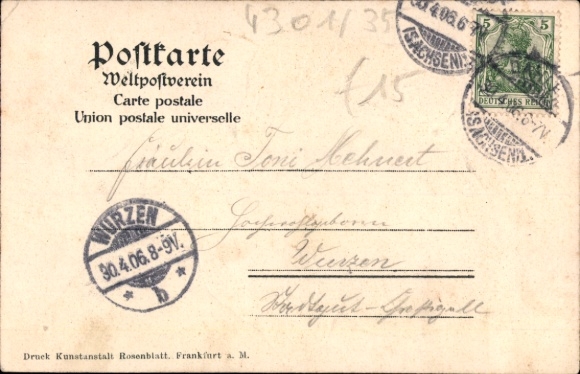 4301435
30.4.06.6-7V.
(SACHSEN)
5 5
DEUTSCHES REICH
Postkarte
Weltpostverein
Carte postale
Union postale universelle
£15
.4.06.6-7V.
(SACHSEN)
Fräulein Toni Mehnert
WURZEN
30.4.06.8-9V.
* b *
Wurzen
Druck Kunstanstalt Rosenblatt, Frankfurt a. M.